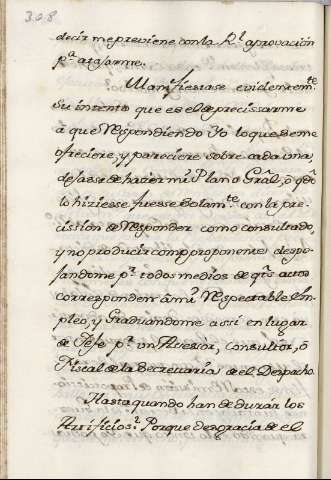 308
decir me previene con la Rl aprovacion
pa atajarme.
Manifiestase evidentemte
su intento que es el de precissarme
à que Respondiendo Yo lo que se me
ofreciere, y pareciere sobre cada una,
dejasse de hacer mi Plan o Gral, ò qdo
lo hiziesse fuesse solamte con la pre-
cission de Responder como consultado,
y no producir como proponente despo-
jandome pr todos medios de qtos actos
corresponden à mi Respectable Em-
pleo, y Graduandome assi en lugar
de Jefe pr un Assessor, Consultor, ò
Fiscal de la Secretaria de el Despacho.
Hasta quando han de durár los
Artificios? Porque desgracia de el